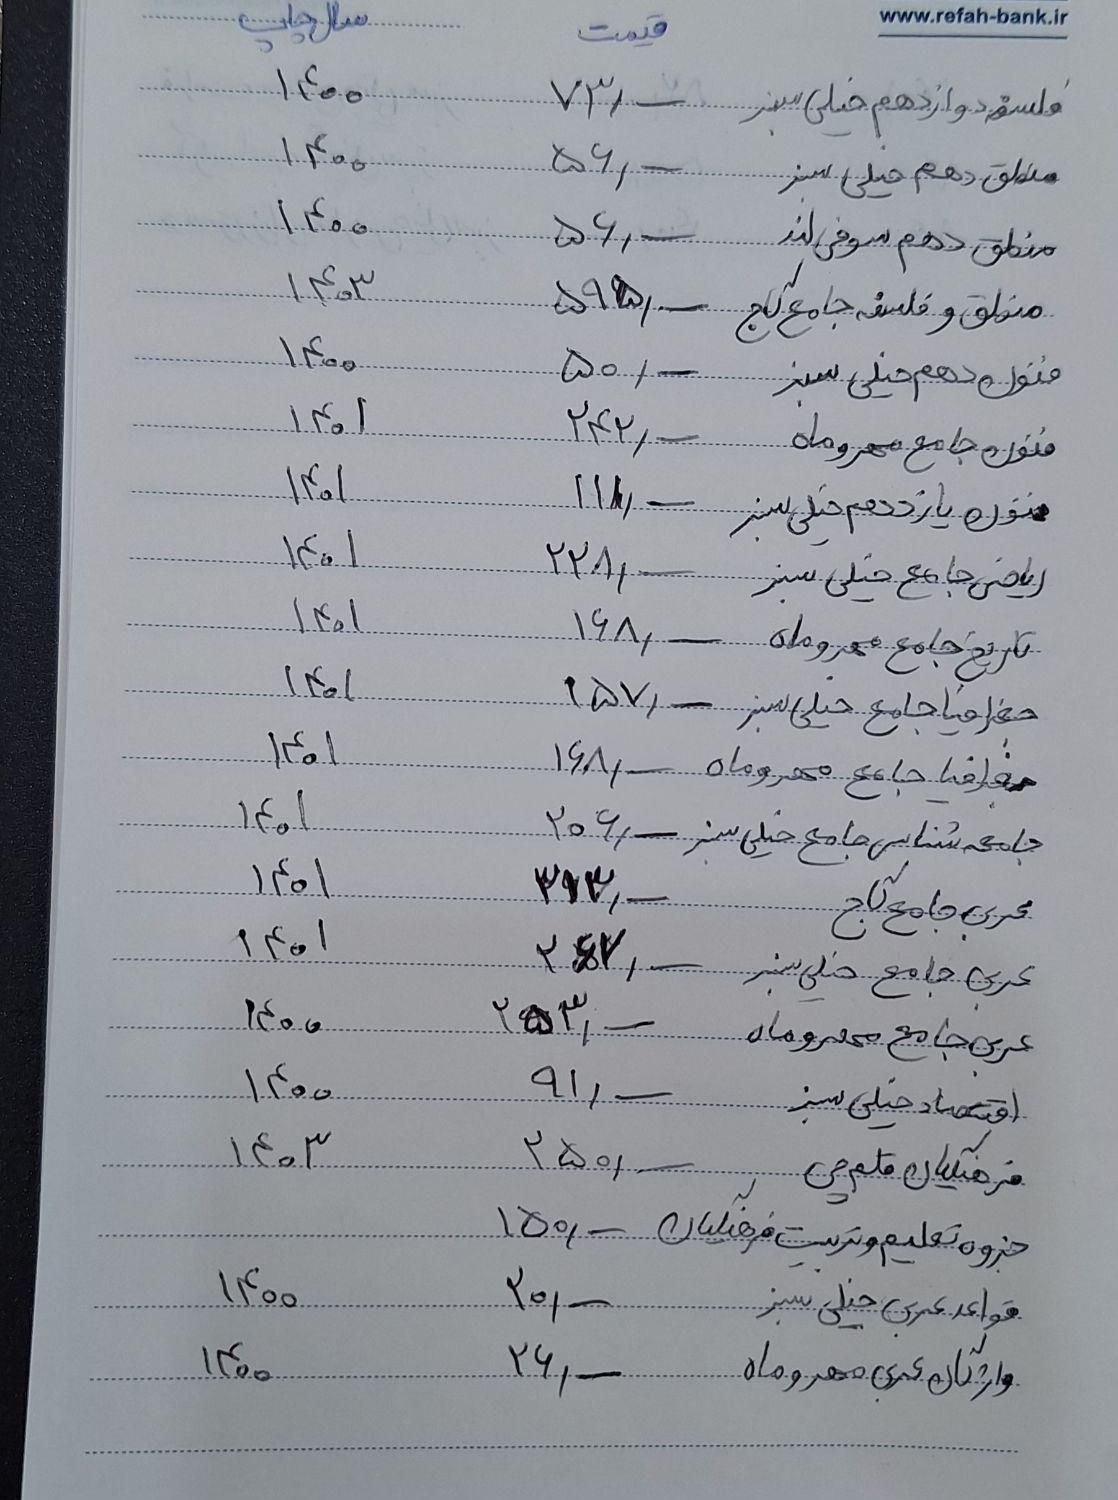 www.refah-bank.ir
قیمت سال چاپ
فلسفه دوازدهم خیلی سبز ۷۳٫— ۱۴۰۰
منطق دهم خیلی سبز ۵۶٫— ۱۴۰۰
منطق دهم سوفی لند ۵۶٫— ۱۴۰۰
منطق و فلسفه جامع گاج ۵۹۵٫— ۱۴۰۳
فنون دهم خیلی سبز ۵۰٫— ۱۴۰۰
فنون جامع مهروماه ۲۴۲٫— ۱۴۰۱
فنون یازدهم خیلی سبز ۱۱۸٫— ۱۴۰۱
ریاضی جامع خیلی سبز ۲۲۸٫— ۱۴۰۱
تاریخ جامع مهروماه ۱۶۸٫— ۱۴۰۱
جغرافیا جامع خیلی سبز ۱۵۷٫— ۱۴۰۱
جغرافیا جامع مهروماه ۱۶۸٫— ۱۴۰۱
جامعه شناسی جامع خیلی سبز ۲۰۶٫— ۱۴۰۱
عربی جامع گاج ۳۱۳٫— ۱۴۰۱
عربی جامع خیلی سبز ۲۶۷٫— ۱۴۰۱
عربی جامع مهروماه ۲۵۳٫— ۱۴۰۰
اقتصاد خیلی سبز ۹۱٫— ۱۴۰۰
فرهنگیان قلم چی ۲۵۰٫— ۱۴۰۳
جزوه تعلیم و تربیت فرهنگیان ۱۵۰٫—
قواعد عربی خیلی سبز ۲۰٫— ۱۴۰۰
واژگان عربی مهروماه ۲۶٫— ۱۴۰۰